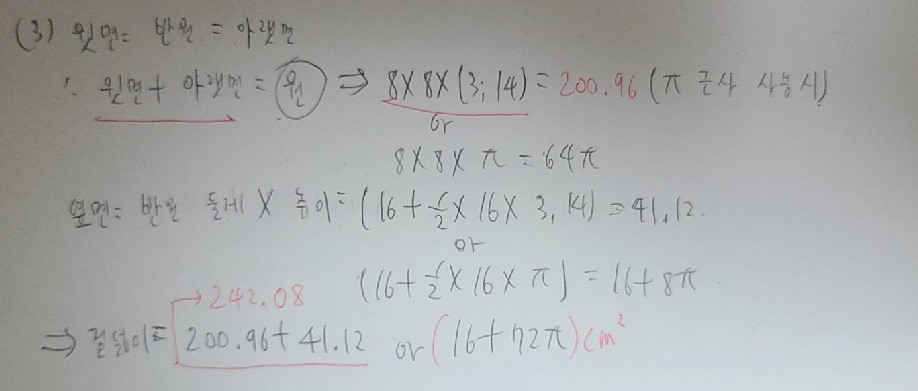 (3) 윗면 = 반원 = 아랫면
∴ 윗면 + 아랫면 = 원 ⇒ 8×8×(3.14) = 200.96 (π 근사 사용시)
or
8×8×π = 64π
옆면 = 반원 둘레 × 높이 = (16+½×16×3.14) = 41.12.
or
(16+½×16×π) = 16+8π
→242.08
⇒ 겉넓이 = 200.96+41.12 or (16+72π)cm²